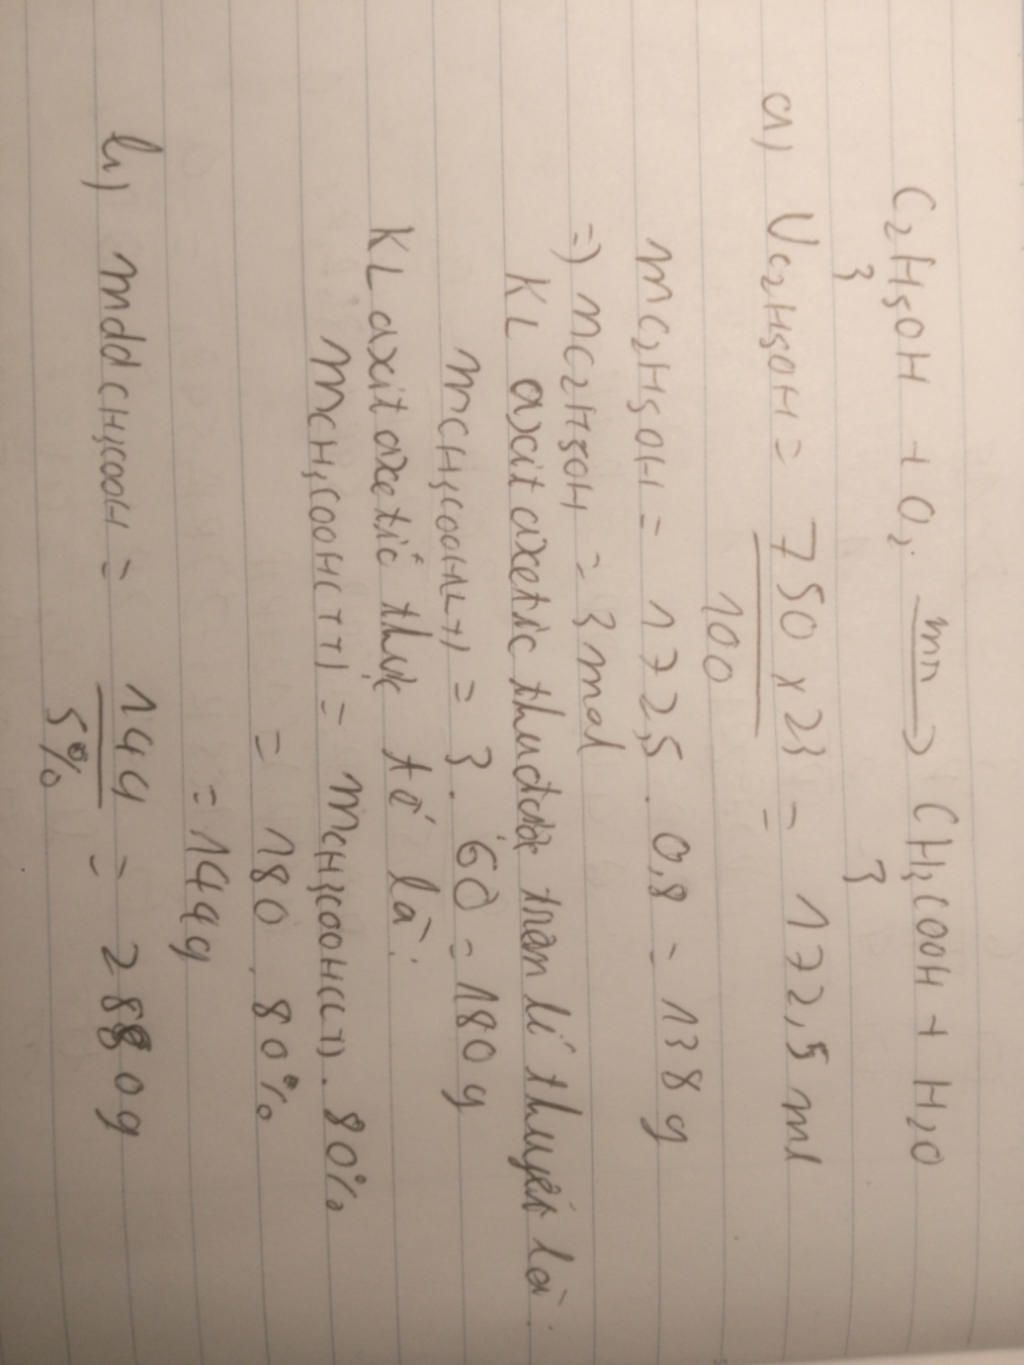 C2H5OH + O2 mn→ CH3COOH + H2O
3 3
a) VC2H5OH = 750 x 23 / 100 = 172,5 ml
mC2H5OH = 172,5 . 0,8 = 138 g
=) nC2H5OH = 3 mol
KL axit axetic thu được trên lí thuyết là:
mCH3COOH(LT) = 3 . 60 = 180 g
KL axit axetic thực tế là:
mCH3COOH(TT) = mCH3COOH(LT) . 80%
= 180 . 80%
= 144g
b) mdd CH3COOH = 144 / 5% = 2880g